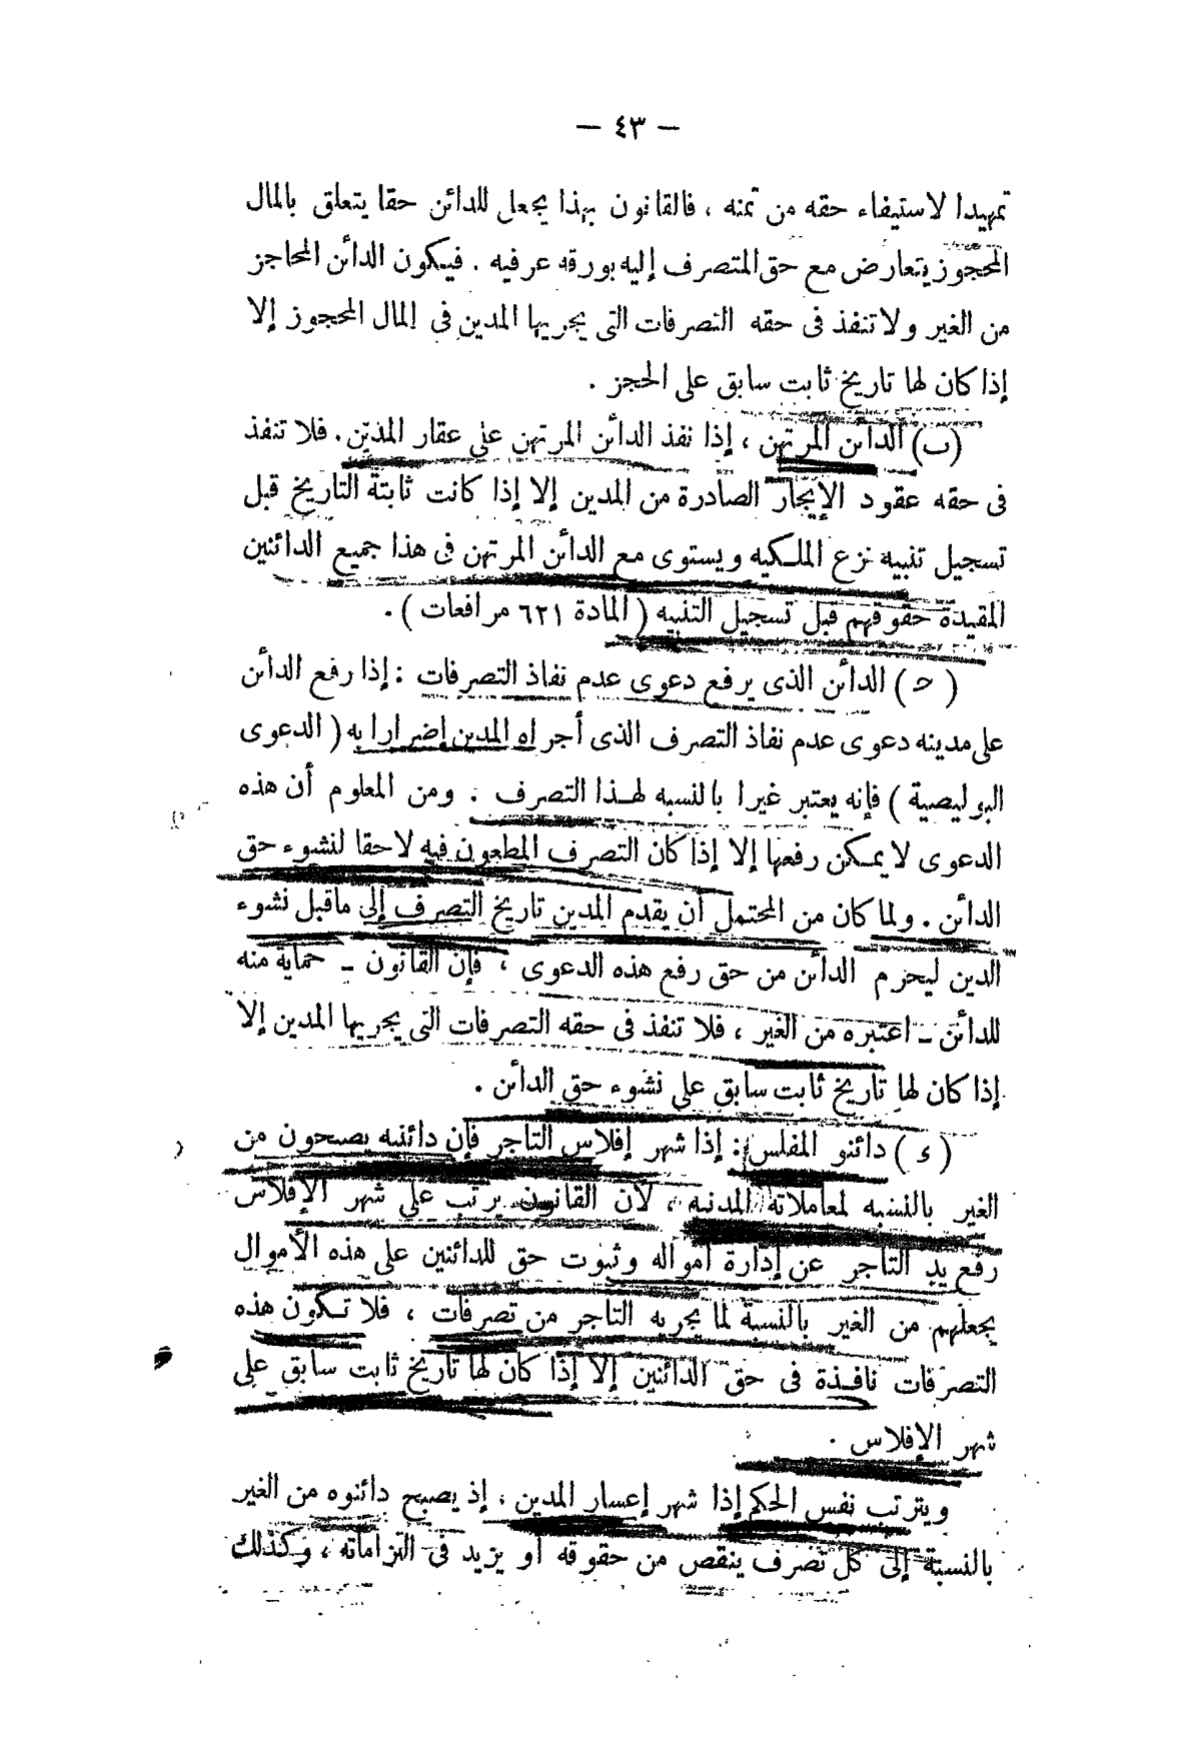 — ٤٣ —
تمهيدا لاستيفاء حقه من ثمنه ، فالقانون بهذا يجعل للدائن حقا يتعلق بالمال
المحجوز يتعارض مع حق المتصرف إليه بورقه عرفيه . فيكون الدائن الحاجز
من الغير ولا تنفذ فى حقه التصرفات التى يجريها المدين فى المال المحجوز إلا
إذا كان لها تاريخ ثابت سابق على الحجز .
(ب) الدائن المرتهن ، إذا نفذ الدائن المرتهن على عقار المدين . فلا تنفذ
فى حقه عقود الإيجار الصادرة من المدين إلا إذا كانت ثابتة التاريخ قبل
تسجيل تنبيه نزع الملكيه ويستوى مع الدائن المرتهن فى هذا جميع الدائنين
المقيدة حقوقهم قبل تسجيل التنبيه ( المادة ٦٢١ مرافعات ) .
( ح ) الدائن الذى يرفع دعوى عدم نفاذ التصرفات : إذا رفع الدائن
على مدينه دعوى عدم نفاذ التصرف الذى أجراه المدين إضرارا به ( الدعوى
البوليصية ) فإنه يعتبر غيرا بالنسبه لهذا التصرف . ومن المعلوم أن هذه
الدعوى لا يمكن رفعها إلا إذا كان التصرف المطعون فيه لاحقا لنشوء حق
الدائن . ولما كان من المحتمل أن يقدم المدين تاريخ التصرف إلى ماقبل نشوء
الدين ليحرم الدائن من حق رفع هذه الدعوى ، فإن القانون – حماية منه
للدائن – اعتبره من الغير ، فلا تنفذ فى حقه التصرفات التى يجريها المدين إلا
إذا كان لها تاريخ ثابت سابق على نشوء حق الدائن .
( ء ) دائنو المفلس : إذا شهر إفلاس التاجر فإن دائنيه يصبحون من
الغير بالنسبه لمعاملاته المدنيه ، لأن القانون يرتب على شهر الإفلاس
رفع يد التاجر عن إدارة أمواله وثبوت حق للدائنين على هذه الأموال
يجعلهم من الغير بالنسبة لما يجريه التاجر من تصرفات ، فلا تكون هذه
التصرفات نافذة فى حق الدائنين إلا إذا كان لها تاريخ ثابت سابق على
شهر الإفلاس .
ويترتب نفس الحكم إذا شهر إعسار المدين ، إذ يصبح دائنوه من الغير
بالنسبة إلى كل تصرف ينقص من حقوقه أو يزيد فى التزاماته ، وكذلك